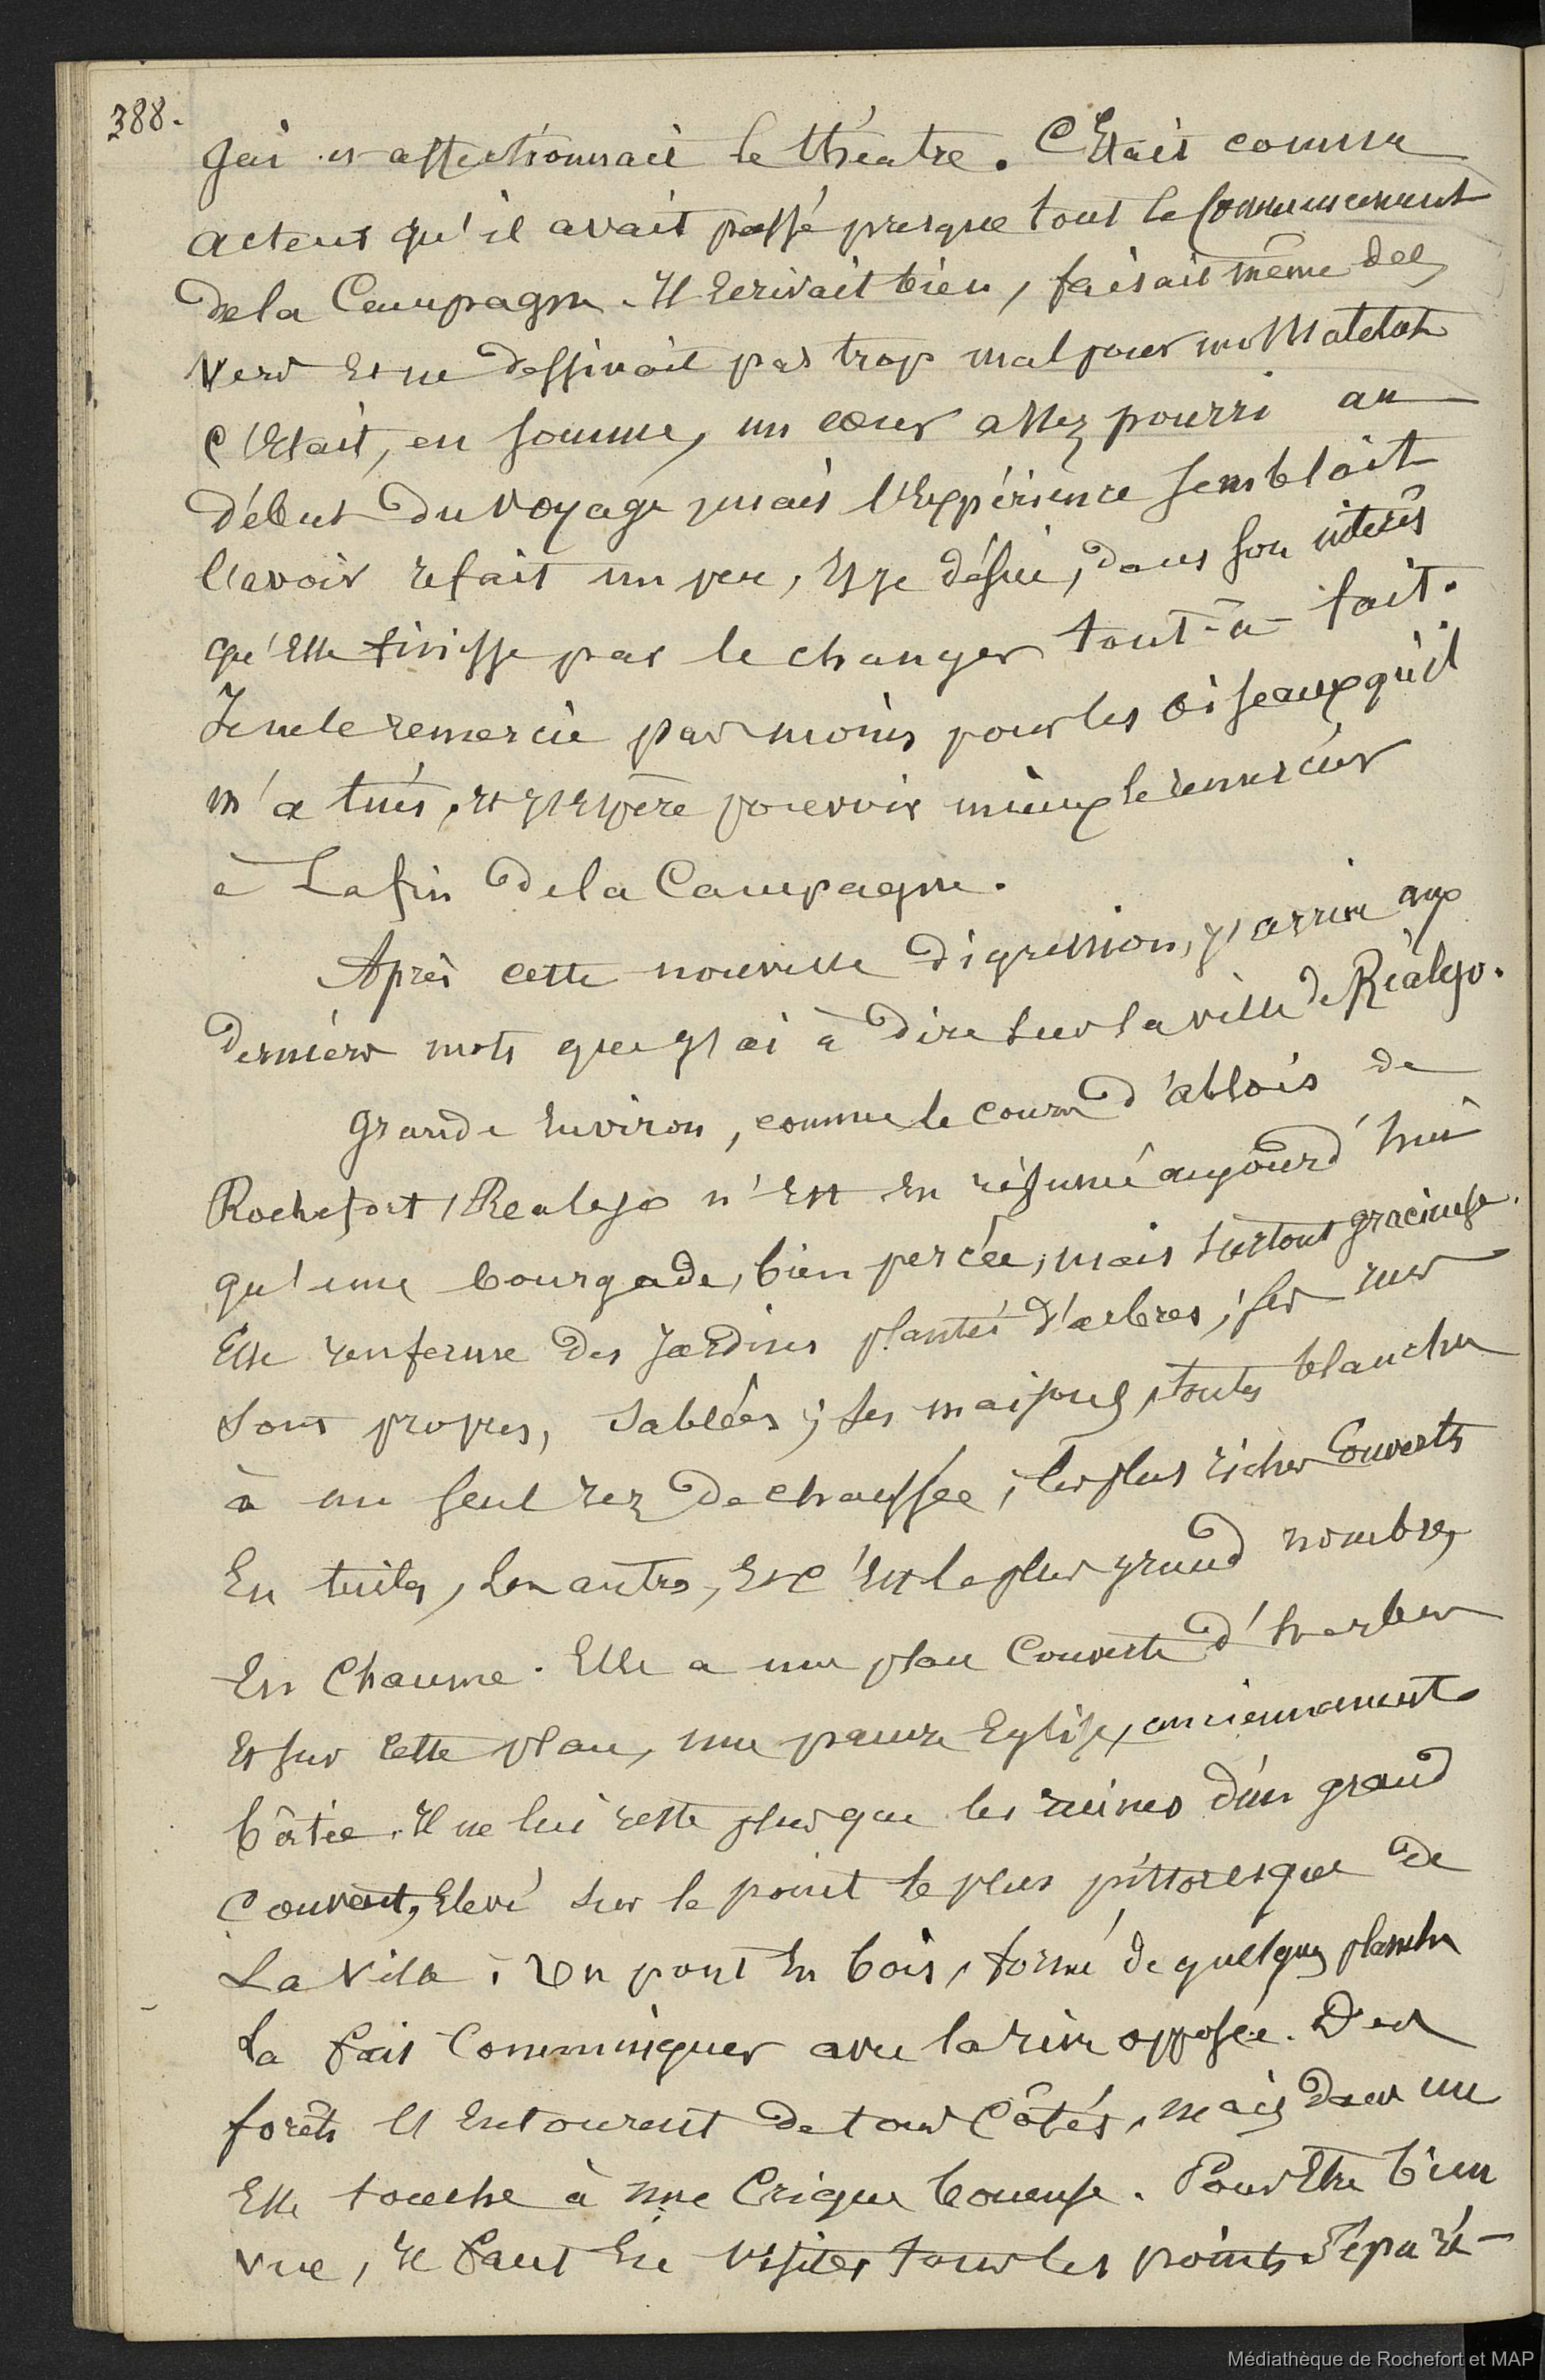 388.
gai et affectionnait le théatre. C'Etait comme
acteur qu'il avait passé presque tout le Commencement
de la Campagne. Il Ecrivait bien, faisait même des
vers Et ne dessinait pas trop mal pour un Matelot
C'Etait, en somme, un cœur assez pourri au
début du voyage mais l'Expérience semblait
l'avoir refait un peu, Et je désire, dans son intérêt
qu'Elle finisse par le changer tout-à-fait.
Je ne le remercie pas moins pour les oiseaux qu'il
m'a tués, et j'Espère pouvoir mieux le remercier
à La fin de la Campagne.
Après cette nouvelle digression, j'arrive aux
derniers mots que j'ai à dire sur la ville de Réalejo.
Grande Environ, comme le cours d'ablois de
Rochefort, Realejo n'Est En résumé aujourd'hui
qu'une bourgade, bien percée, mais surtout gracieuse.
Elle renferme des Jardins plantés d'arbres; ses rues
sont propres, sablées; ses maisons, toutes blanches
à un seul rez de chaussée; les plus riches Couverts
En tuiles, les autres, Et c'Est le plus grand nombre,
En Chaume. Elle a une place Couverte d'herbes
Et sur cette place, une pauvre Eglise, anciennement
bâtie. Il ne lui reste plus que les ruines d'un grand
Couvent, Elevé sur le point le plus pittoresque de
La Ville. Un pont En bois, formé de quelques planches
La fait Communiquer avec la rive opposée. Des
forêts l'Entourent de tous Côtés, mais dans un
Elle touche à une Crique boueuse. Pour Etre bien
vue, il faut En visiter tous les points séparé-
Médiathèque de Rochefort et MAP